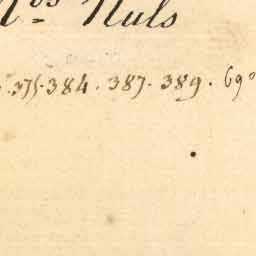 Nos Nuls
. 375. 384. 387. 389. 690